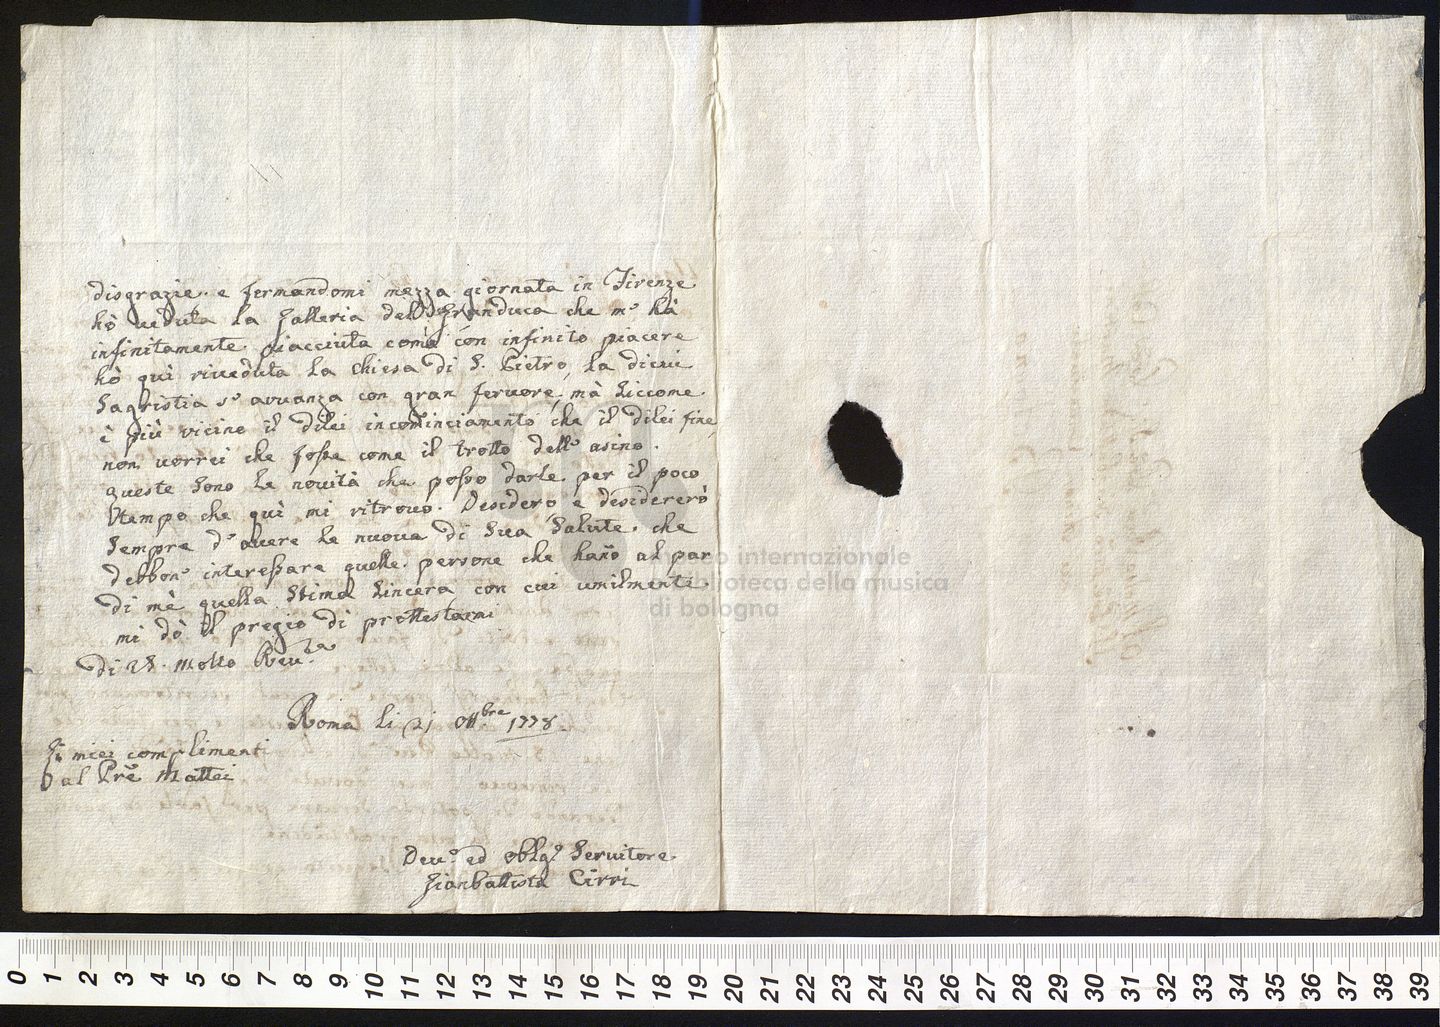 disgrazie. e fermandomi mezza giornata in Firenze
hò veduta la Galleria dell Granduca che m' hà
infinitamente piacciuta comè con infinito piacere
hò qui riveduta la Chiesa di S. Pietro, la dicui
Sagristia s' avvanza con gran fervore, mà Siccome
è più vicino il dilei incominciamento che il dilei fine,
non vorrei che fosse come il trotto dell' asino.
queste Sono le novità che posso darle per il poco
tempo che quì mi ritrovo. Desidero e desidererò
Sempre d' avere le nuova di Sua Salute. che
debbon' interessare quelle persone che hano al par
di mè quella Stima Sincera con cui umilmente
mi dò il pregio di prottestarmi
di V.S. Molto Rev.da
Roma li 21 Ottbre 1778.
miei complimenti
al Pre Mattei
Dev.o ed obblg.o Servitore
Gianbattista Cirri
museo internazionale
e biblioteca della musica
di bologna
0 1 2 3 4 5 6 7 8 9 10 11 12 13 14 15 16 17 18 19 20 21 22 23 24 25 26 27 28 29 30 31 32 33 34 35 36 37 38 39